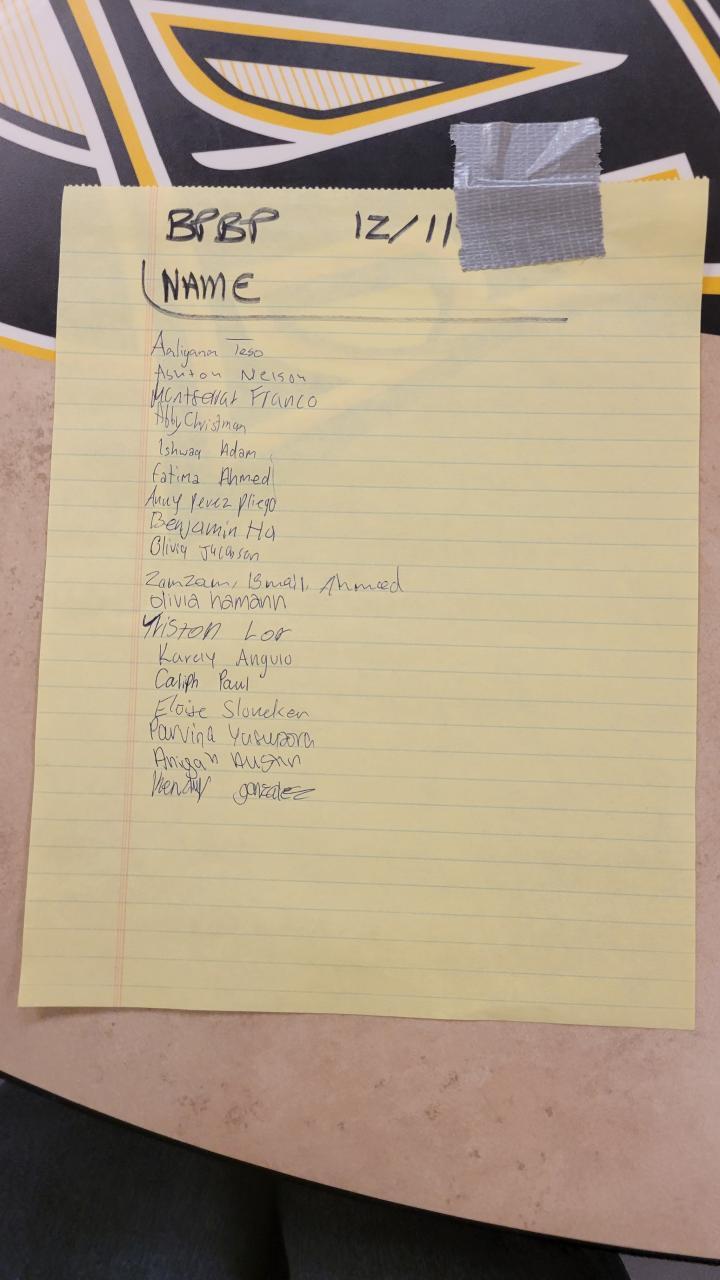 BPBP 12/11
NAME
Aaliyana Teso
Ashton Nelson
Montserrat Franco
Abby Christman
Ishwaq Adam
Fatima Ahmed
Anny Perez Pliego
Benjamin Ha
Olivia Jacobson
Zamzam, Ismail, Ahmed
olivia hamann
Triston Lor
Karely Angulo
Caliph Paul
Eloise Sloneker
Parvina Yusupova
Wendy gonzalez